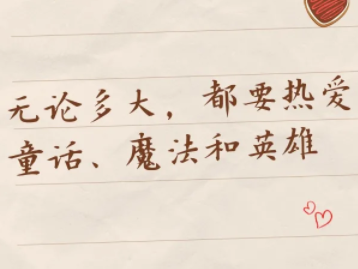 无论多大，都要热爱
童话、魔法和英雄